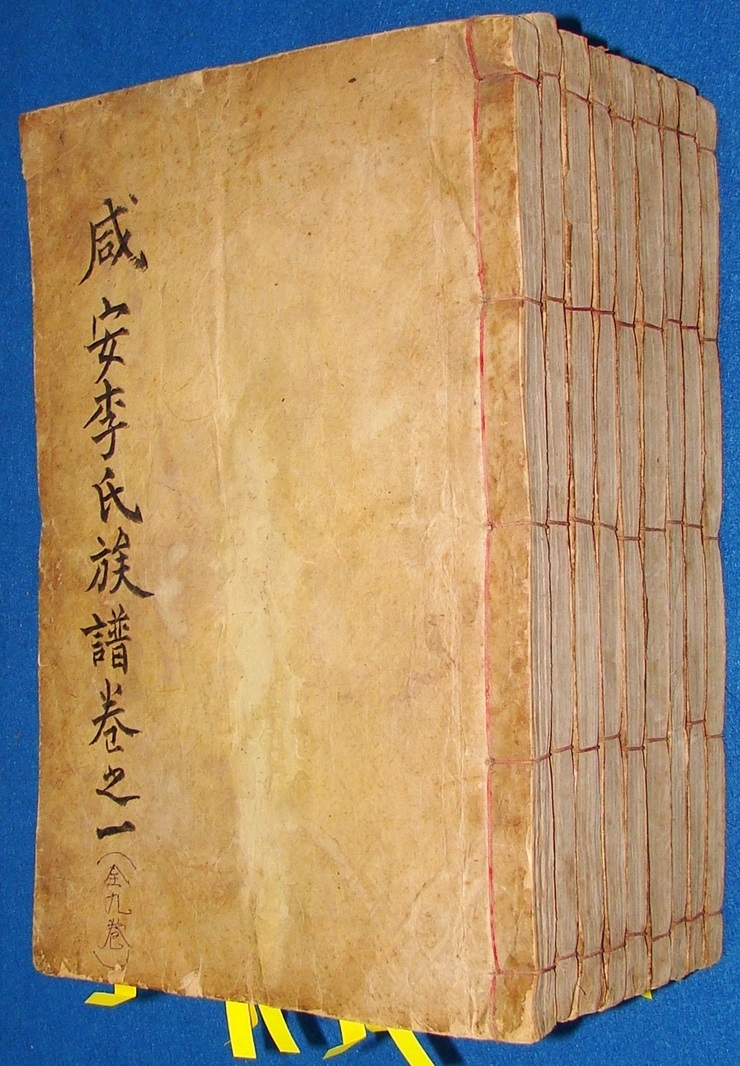 咸安李氏族譜卷之一
(全九卷)